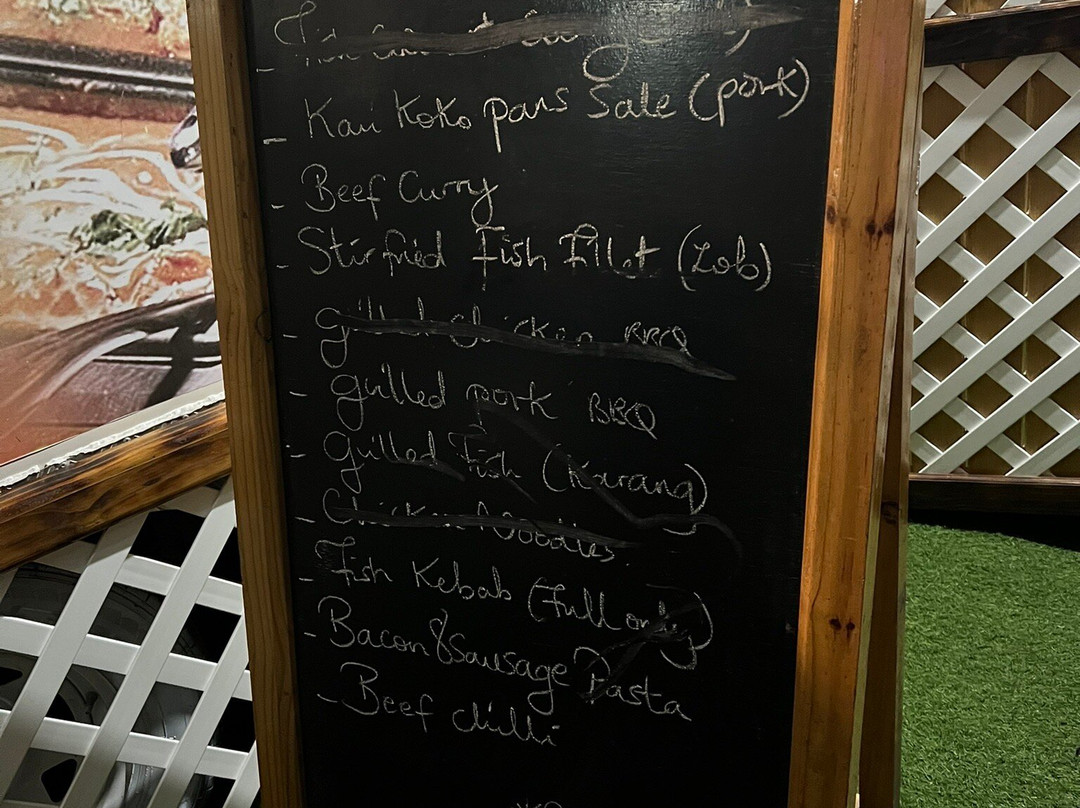 - Kari Koko pans Sale (pork)
- Beef Curry
- Stirfried Fish Fillet (Zob)
- grilled chicken BBQ
- grilled pork BBQ
- grilled Fish (Karang)
- Chicken Noodles
- Fish Kebab (Full only)
- Bacon & Sausage Pasta
- Beef chilli